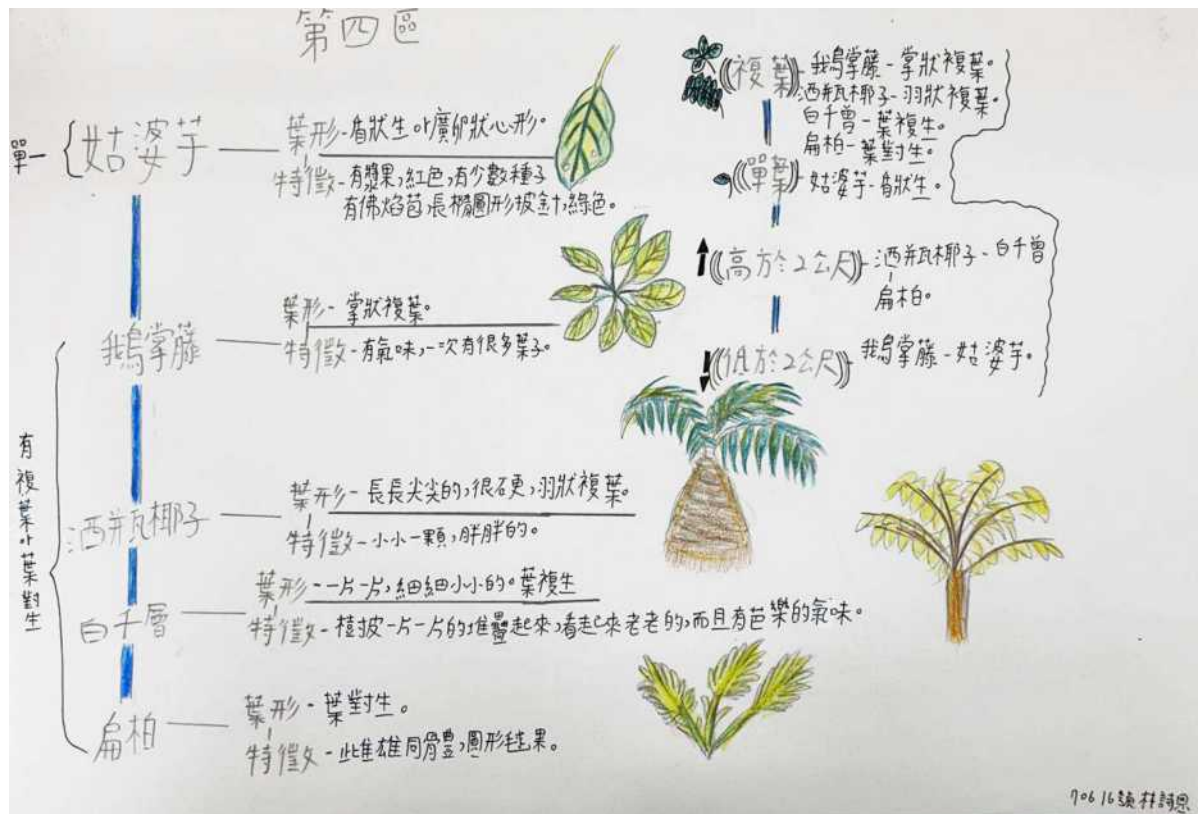 第四區
單一
姑婆芋
葉形-盾狀生 or 廣卵狀心形。
特徵-有漿果,紅色,有少數種子
有佛焰苞,長橢圓形披針,綠色。
有複葉 or 葉對生
鵝掌藤
葉形-掌狀複葉。
特徵-有氣味,一次有很多葉子。
酒瓶椰子
葉形-長長尖尖的,很硬,羽狀複葉。
特徵-小小一顆,胖胖的。
白千層
葉形-一片一片,細細小小的。葉複生
特徵-樹皮一片一片的堆疊起來,看起來老老的,而且有芭樂的氣味。
扁柏
葉形-葉對生。
特徵-雌雄同體,圓形毬果。
((複葉))-鵝掌藤-掌狀複葉。
酒瓶椰子-羽狀複葉。
白千曾-葉複生。
扁柏-葉對生。
((單葉))-姑婆芋-盾狀生。
((高於2公尺))-酒瓶椰子-白千曾
扁柏。
((低於2公尺))-鵝掌藤-姑婆芋。
706 16號 林詩恩